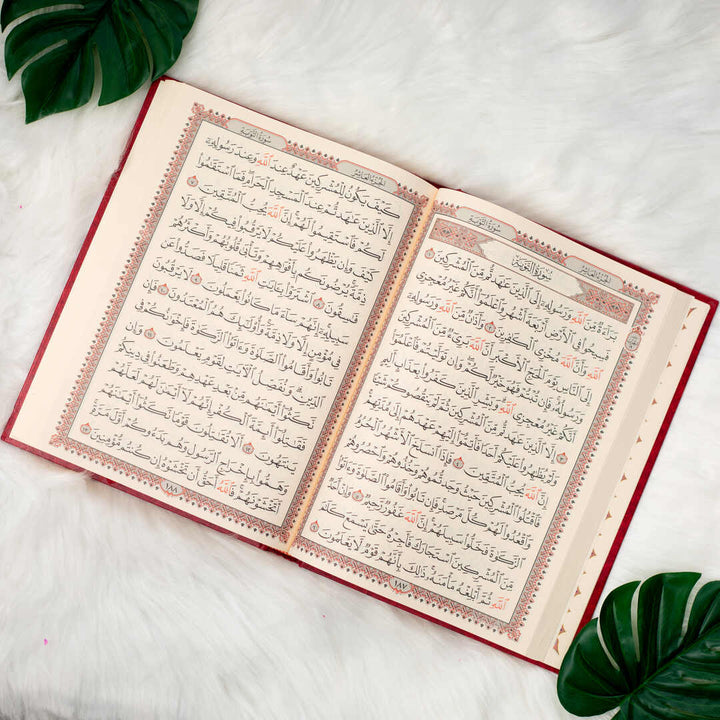 الجزء العاشر
سورة التوبة
سُورَةُ التَّوْبَةِ
بَرَآءَةٌ مِّنَ ٱللَّهِ وَرَسُولِهِۦٓ إِلَى ٱلَّذِينَ عَٰهَدتُّم مِّنَ ٱلْمُشْرِكِينَ ١
فَسِيحُوا۟ فِى ٱلْأَرْضِ أَرْبَعَةَ أَشْهُرٍ وَٱعْلَمُوٓا۟ أَنَّكُمْ غَيْرُ مُعْجِزِى
ٱللَّهِ وَأَنَّ ٱللَّهَ مُخْزِى ٱلْكَٰفِرِينَ ٢ وَأَذَٰنٌ مِّنَ ٱللَّهِ وَرَسُولِهِۦٓ
إِلَى ٱلنَّاسِ يَوْمَ ٱلْحَجِّ ٱلْأَكْبَرِ أَنَّ ٱللَّهَ بَرِىٓءٌ مِّنَ ٱلْمُشْرِكِينَ
وَرَسُولُهُۥ فَإِن تُبْتُمْ فَهُوَ خَيْرٌ لَّكُمْ وَإِن تَوَلَّيْتُمْ فَٱعْلَمُوٓا۟
أَنَّكُمْ غَيْرُ مُعْجِزِى ٱللَّهِ وَبَشِّرِ ٱلَّذِينَ كَفَرُوا۟ بِعَذَابٍ أَلِيمٍ ٣
إِلَّا ٱلَّذِينَ عَٰهَدتُّم مِّنَ ٱلْمُشْرِكِينَ ثُمَّ لَمْ يَنقُصُوكُمْ شَيْـًٔا
وَلَمْ يُظَٰهِرُوا۟ عَلَيْكُمْ أَحَدًا فَأَتِمُّوٓا۟ إِلَيْهِمْ عَهْدَهُمْ إِلَىٰ مُدَّتِهِمْ
إِنَّ ٱللَّهَ يُحِبُّ ٱلْمُتَّقِينَ ٤ فَإِذَا ٱنسَلَخَ ٱلْأَشْهُرُ ٱلْحُرُمُ
فَٱقْتُلُوا۟ ٱلْمُشْرِكِينَ حَيْثُ وَجَدتُّمُوهُمْ وَخُذُوهُمْ وَٱحْصُرُوهُمْ
وَٱقْعُدُوا۟ لَهُمْ كُلَّ مَرْصَدٍ فَإِن تَابُوا۟ وَأَقَامُوا۟ ٱلصَّلَوٰةَ وَءَاتَوُا۟
ٱلزَّكَوٰةَ فَخَلُّوا۟ سَبِيلَهُمْ إِنَّ ٱللَّهَ غَفُورٌ رَّحِيمٌ ٥ وَإِنْ أَحَدٌ
مِّنَ ٱلْمُشْرِكِينَ ٱسْتَجَارَكَ فَأَجِرْهُ حَتَّىٰ يَسْمَعَ كَلَٰمَ
ٱللَّهِ ثُمَّ أَبْلِغْهُ مَأْمَنَهُۥ ذَٰلِكَ بِأَنَّهُمْ قَوْمٌ لَّا يَعْلَمُونَ ٦
١٨٧
الجزء العاشر
سورة التوبة
كَيْفَ يَكُونُ لِلْمُشْرِكِينَ عَهْدٌ عِندَ ٱللَّهِ وَعِندَ رَسُولِهِۦٓ
إِلَّا ٱلَّذِينَ عَٰهَدتُّمْ عِندَ ٱلْمَسْجِدِ ٱلْحَرَامِ فَمَا ٱسْتَقَٰمُوا۟
لَكُمْ فَٱسْتَقِيمُوا۟ لَهُمْ إِنَّ ٱللَّهَ يُحِبُّ ٱلْمُتَّقِينَ ٧
كَيْفَ وَإِن يَظْهَرُوا۟ عَلَيْكُمْ لَا يَرْقُبُوا۟ فِيكُمْ إِلًّا وَلَا
ذِمَّةً يُرْضُونَكُم بِأَفْوَٰهِهِمْ وَتَأْبَىٰ قُلُوبُهُمْ وَأَكْثَرُهُمْ
فَٰسِقُونَ ٨ ٱشْتَرَوْا۟ بِـَٔايَٰتِ ٱللَّهِ ثَمَنًا قَلِيلًا فَصَدُّوا۟ عَن
سَبِيلِهِۦٓ إِنَّهُمْ سَآءَ مَا كَانُوا۟ يَعْمَلُونَ ٩ لَا يَرْقُبُونَ
فِى مُؤْمِنٍ إِلًّا وَلَا ذِمَّةً وَأُو۟لَٰٓئِكَ هُمُ ٱلْمُعْتَدُونَ ١٠ فَإِن
تَابُوا۟ وَأَقَامُوا۟ ٱلصَّلَوٰةَ وَءَاتَوُا۟ ٱلزَّكَوٰةَ فَإِخْوَٰنُكُمْ فِى
ٱلدِّينِ وَنُفَصِّلُ ٱلْـَٔايَٰتِ لِقَوْمٍ يَعْلَمُونَ ١١ وَإِن
نَّكَثُوٓا۟ أَيْمَٰنَهُم مِّنۢ بَعْدِ عَهْدِهِمْ وَطَعَنُوا۟ فِى دِينِكُمْ
فَقَٰتِلُوٓا۟ أَئِمَّةَ ٱلْكُفْرِ إِنَّهُمْ لَآ أَيْمَٰنَ لَهُمْ لَعَلَّهُمْ
يَنتَهُونَ ١٢ أَلَا تُقَٰتِلُونَ قَوْمًا نَّكَثُوٓا۟ أَيْمَٰنَهُمْ
وَهَمُّوا۟ بِإِخْرَاجِ ٱلرَّسُولِ وَهُم بَدَءُوكُمْ أَوَّلَ مَرَّةٍ
أَتَخْشَوْنَهُمْ فَٱللَّهُ أَحَقُّ أَن تَخْشَوْهُ إِن كُنتُم مُّؤْمِنِينَ ١٣
١٨٨